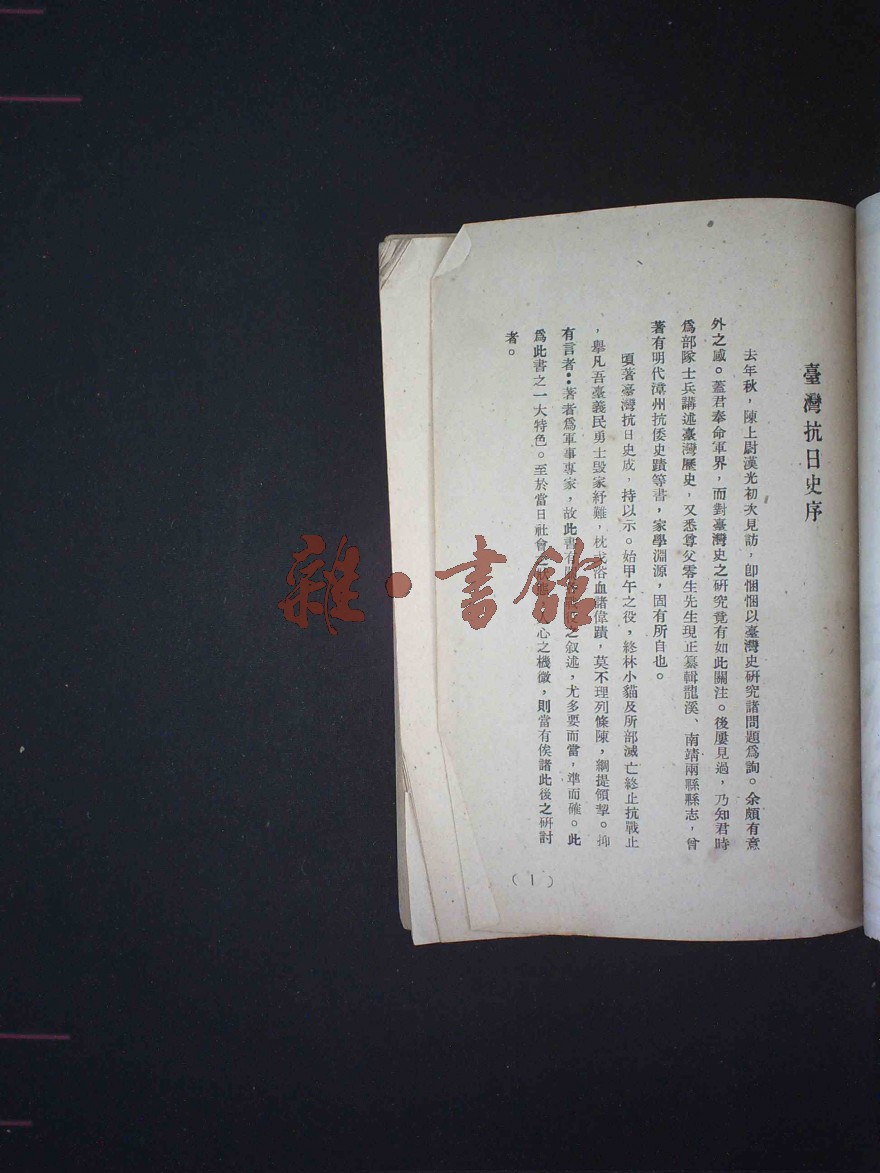 臺灣抗日史序
去年秋，陳上尉漢光初次見訪，卽悃悃以臺灣史研究諸問題爲詢。余頗有意
外之感。蓋君奉命軍界，而對臺灣史之研究竟有如此關注。後屢見過，乃知君時
爲部隊士兵講述臺灣歷史，又悉尊父零生先生現正纂輯龍溪、南靖兩縣縣志，曾
著有明代漳州抗倭史蹟等書，家學淵源，固有所自也。
頃著臺灣抗日史成，持以示。始甲午之役，終林小貓及所部滅亡終止抗戰止
，舉凡吾臺義民勇士毀家紓難，枕戈浴血諸偉蹟，莫不理列條陳，綱提領挈。抑
有言者：著者爲軍事專家，故此書有之叙述，尤多要而當，準而確。此
爲此書之一大特色。至於當日社會心之機微，則當有俟諸此後之研討
者。
（1）
雜·書館